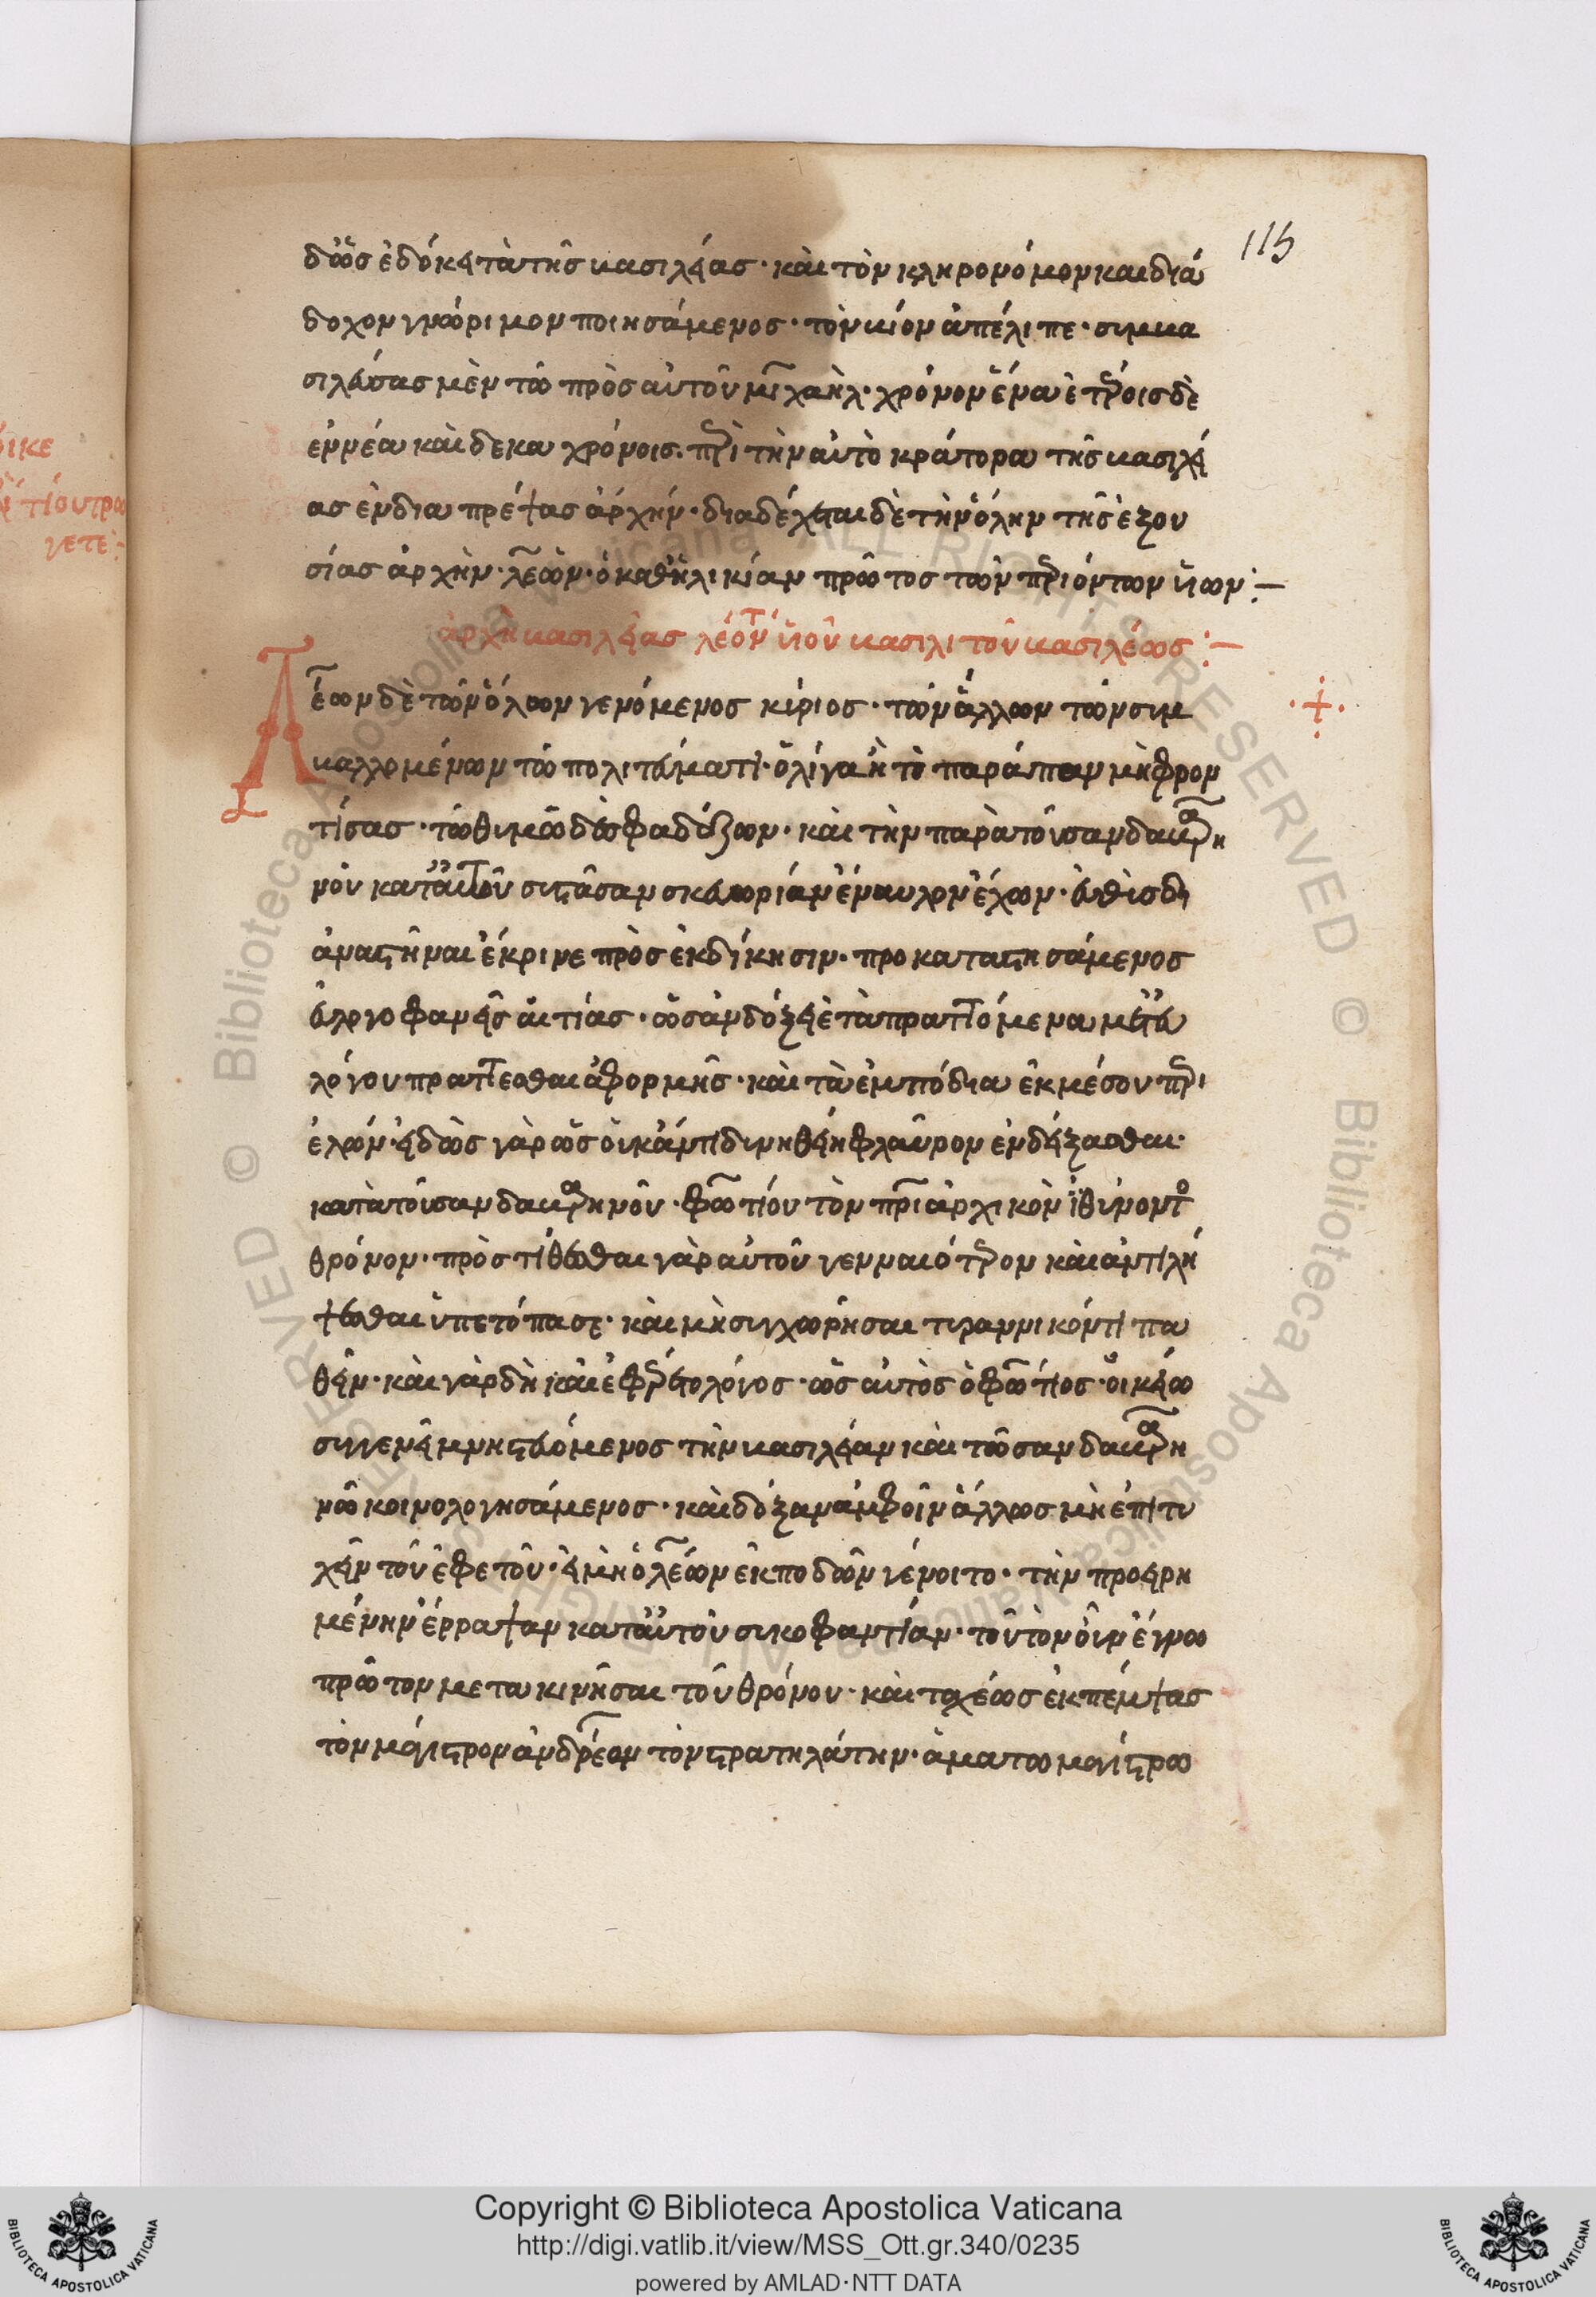 115
δὼς ἐδόκει τὰ τῆς βασιλείας· καὶ τὸν κληρονόμον καὶ διά
δοχον γνώριμον ποιησάμενος· τὸν βίον ἀπέλιπε· συμβα
σιλεύσας μὲν τῶ πρὸς αὐτοῦ μιχαὴλ· χρόνον ἕνα ἑτέροις δὲ
ἐννέα καὶ δεκα χρόνοις. περὶ τὴν αὐτοκράτορα τῆς βασιλεί
ας ἐνδιαπρέψας ἀρχήν· διαδέχεται δὲ τὴν ὅλην τῆς ἐξου
σίας ἀρχὴν· λέων· ὁ καθἡλικίαν πρῶτος τῶν περιόντων υἱων:–
ἀρχὴ βασιλείας λέοντος υἱοῦ βασιλίου τοῦ βασιλέως:–
Λέων δὲ τῶν ὅλων γενόμενος κύριος· τῶν ἄλλων τῶν συμ
βαλλομένων τῶ πολιτεύματι· ὀλίγα ἢ τὸ παράπαν μὴ φρον
τίσας· τῶ θυμῶ δ' ἐσφαδάζων· καὶ τὴν παρὰ τοῦ σανδαβαρη
νοῦ κατ' αὐτοῦ συστᾶσαν σκαιωρίαν ἔναυλον ἔχων· εὐθὺς δι
ἀναστῆναι ἔκρινε πρὸς ἐκδίκησιν· προκαταστησάμενος
εὐλογοφανεῖς αἰτίας· ὡς ἂν δόξειε τὰ πραττόμενα μετ' εὐ
λόγου πράττεσθαι ἀφορμῆς· καὶ τὰ ἐμπόδια ἐκ μέσου περι
ελών· εἰδὼς γὰρ ὡς οὐκ ἄν τι δυνηθείη φλαῦρον ἐνδείξασθαι·
κατὰ τοῦ σανδαβαρηνοῦ· φωτίου τὸν πατριαρχικὸν ἰθύνοντος
θρόνον· πρὸστίθεσθαι γὰρ αὐτοῦ γενναιότερον καὶ ἀντιλή
ψεσθαι ὑπετόπασε· καὶ μὴ συγχωρῆσαι τυραννικόν τι πα
θεῖν· καὶ γὰρ δὴ καὶ ἐφέρετο λόγος· ὡς αὐτὸς ὁ φώτιος· οἰκείω
συγγενεῖ μνηστευόμενος τὴν βασιλείαν καὶ τῶ σανδαβαρη
νῶ κοινολογησάμενος· καὶ δόξαν ἀμφοῖν ἄλλως μὴ ἐπιτυ
χεῖν τοῦ ἐφετοῦ· εἰ μὴ ὁ λέων ἐκποδὼν γένοιτο· τὴν προειρη
μένην ἔρραψαν κατ' αὐτοῦ συκοφαντίαν· τοῦτον οὖν ἔγνω
πρῶτον μετακινῆσαι τοῦ θρόνου· καὶ ταχέως ἐκπέμψας
τὸν μάγιστρον ἀνδρέαν τὸν στρατηλάτην· ἅμα τω μαγίστρω
Copyright © Biblioteca Apostolica Vaticana
http://digi.vatlib.it/view/MSS_Ott.gr.340/0235
powered by AMLAD·NTT DATA